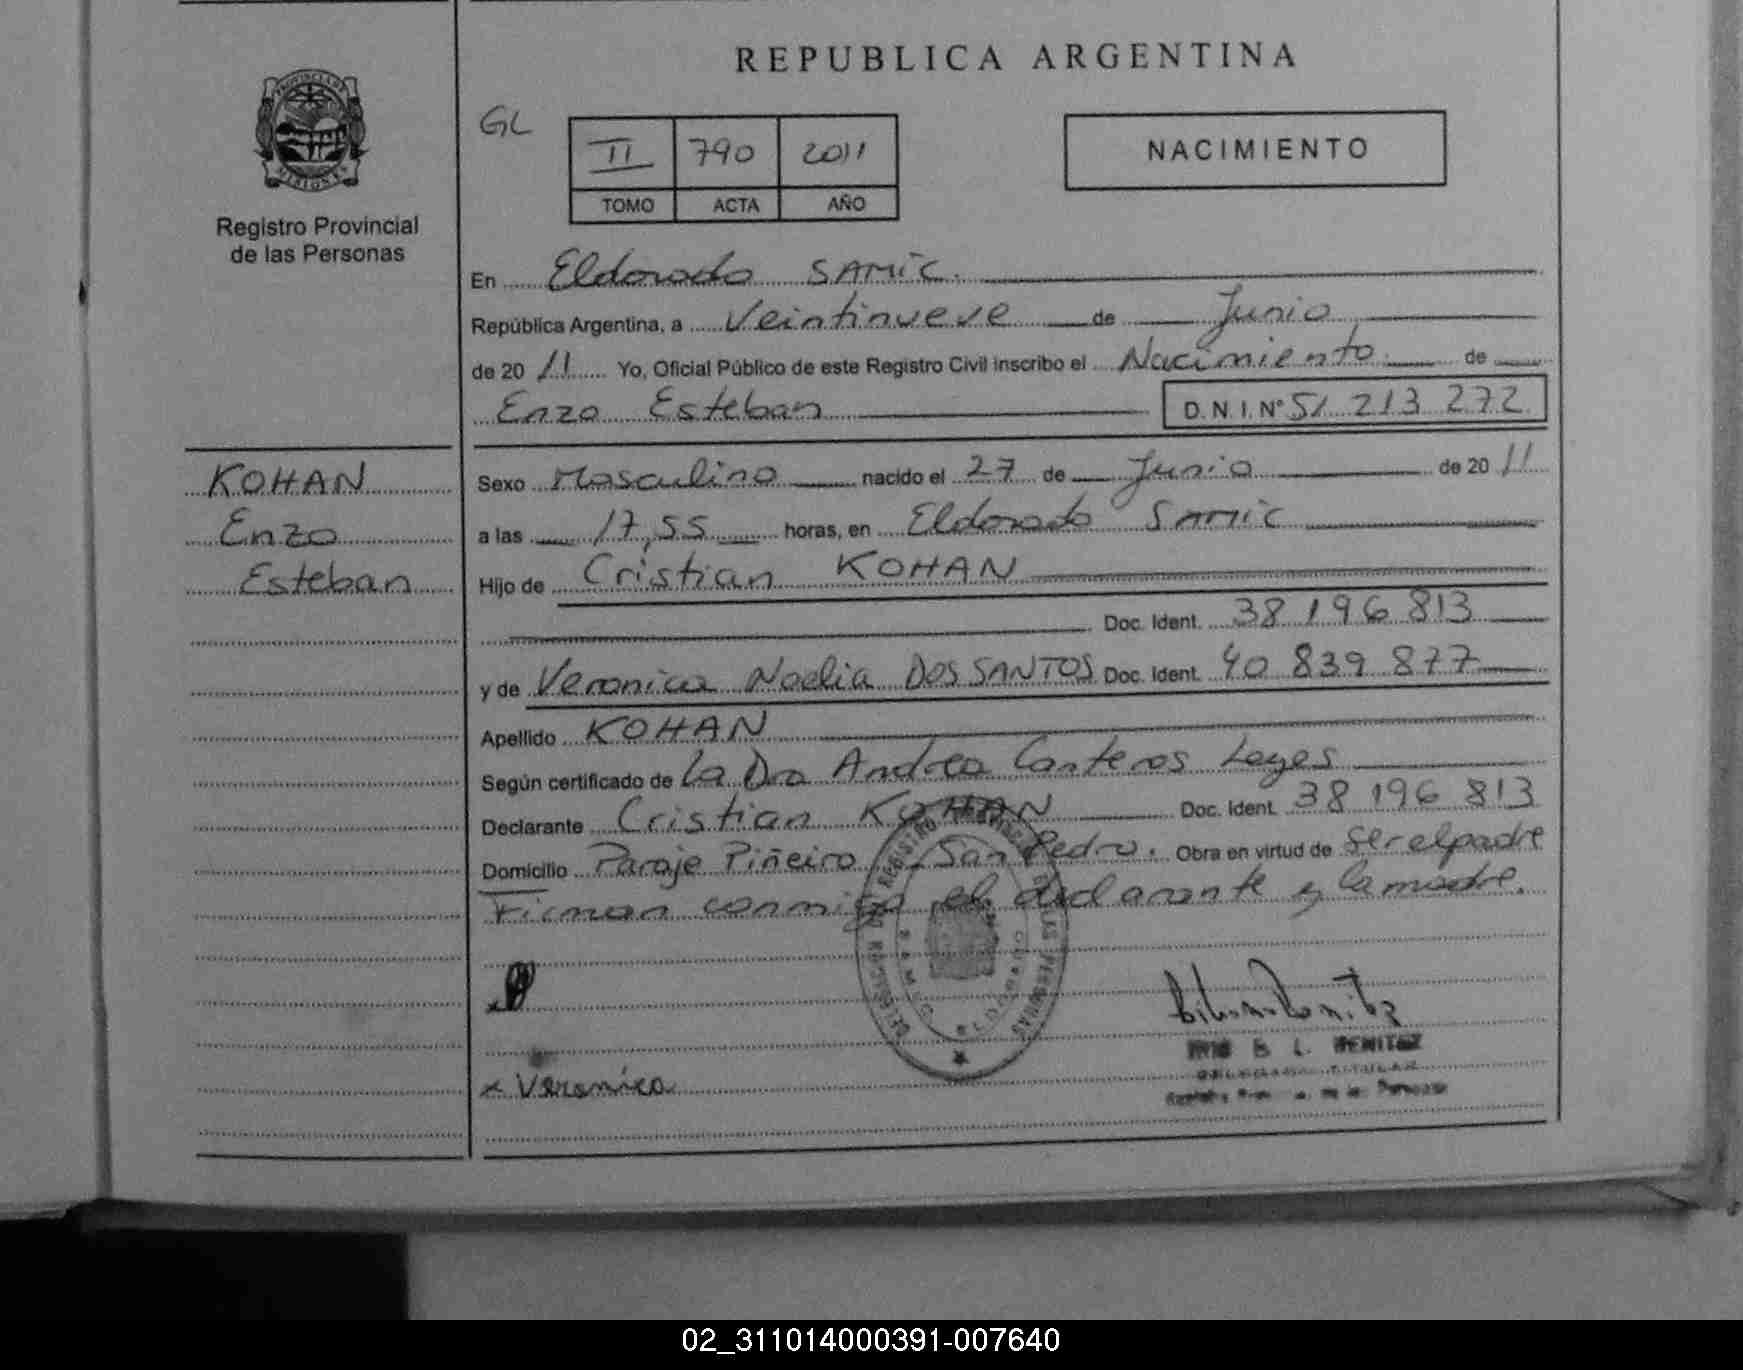 REPUBLICA ARGENTINA
PROVINCIA DE
MISIONES
Registro Provincial
de las Personas
GL
II 790 2011
TOMO ACTA AÑO
NACIMIENTO
En Eldorado SAMIC.
República Argentina, a Veintinueve de Junio
de 20 11 Yo, Oficial Público de este Registro Civil inscribo el Nacimiento de
Enzo Esteban D.N.I. N° 51 213 272
KOHAN
Enzo
Esteban
Sexo Masculino nacido el 27 de Junio de 20 11
a las 17,55 horas, en Eldorado SAMIC
Hijo de Cristian KOHAN
Doc. Ident. 38 196 813
y de Veronica Noelia DOS SANTOS Doc. Ident. 40 839 877
Apellido KOHAN
Según certificado de La Dra Andrea Canteros Leyes
Declarante Cristian KOHAN Doc. Ident. 38 196 813
Domicilio Paraje Piñeiro, San Pedro. Obra en virtud de ser el padre
Firman conmigo el declarante y la madre.
x Veronica
B. L. BENITEZ
DELEGADA TITULAR
02_311014000391-007640